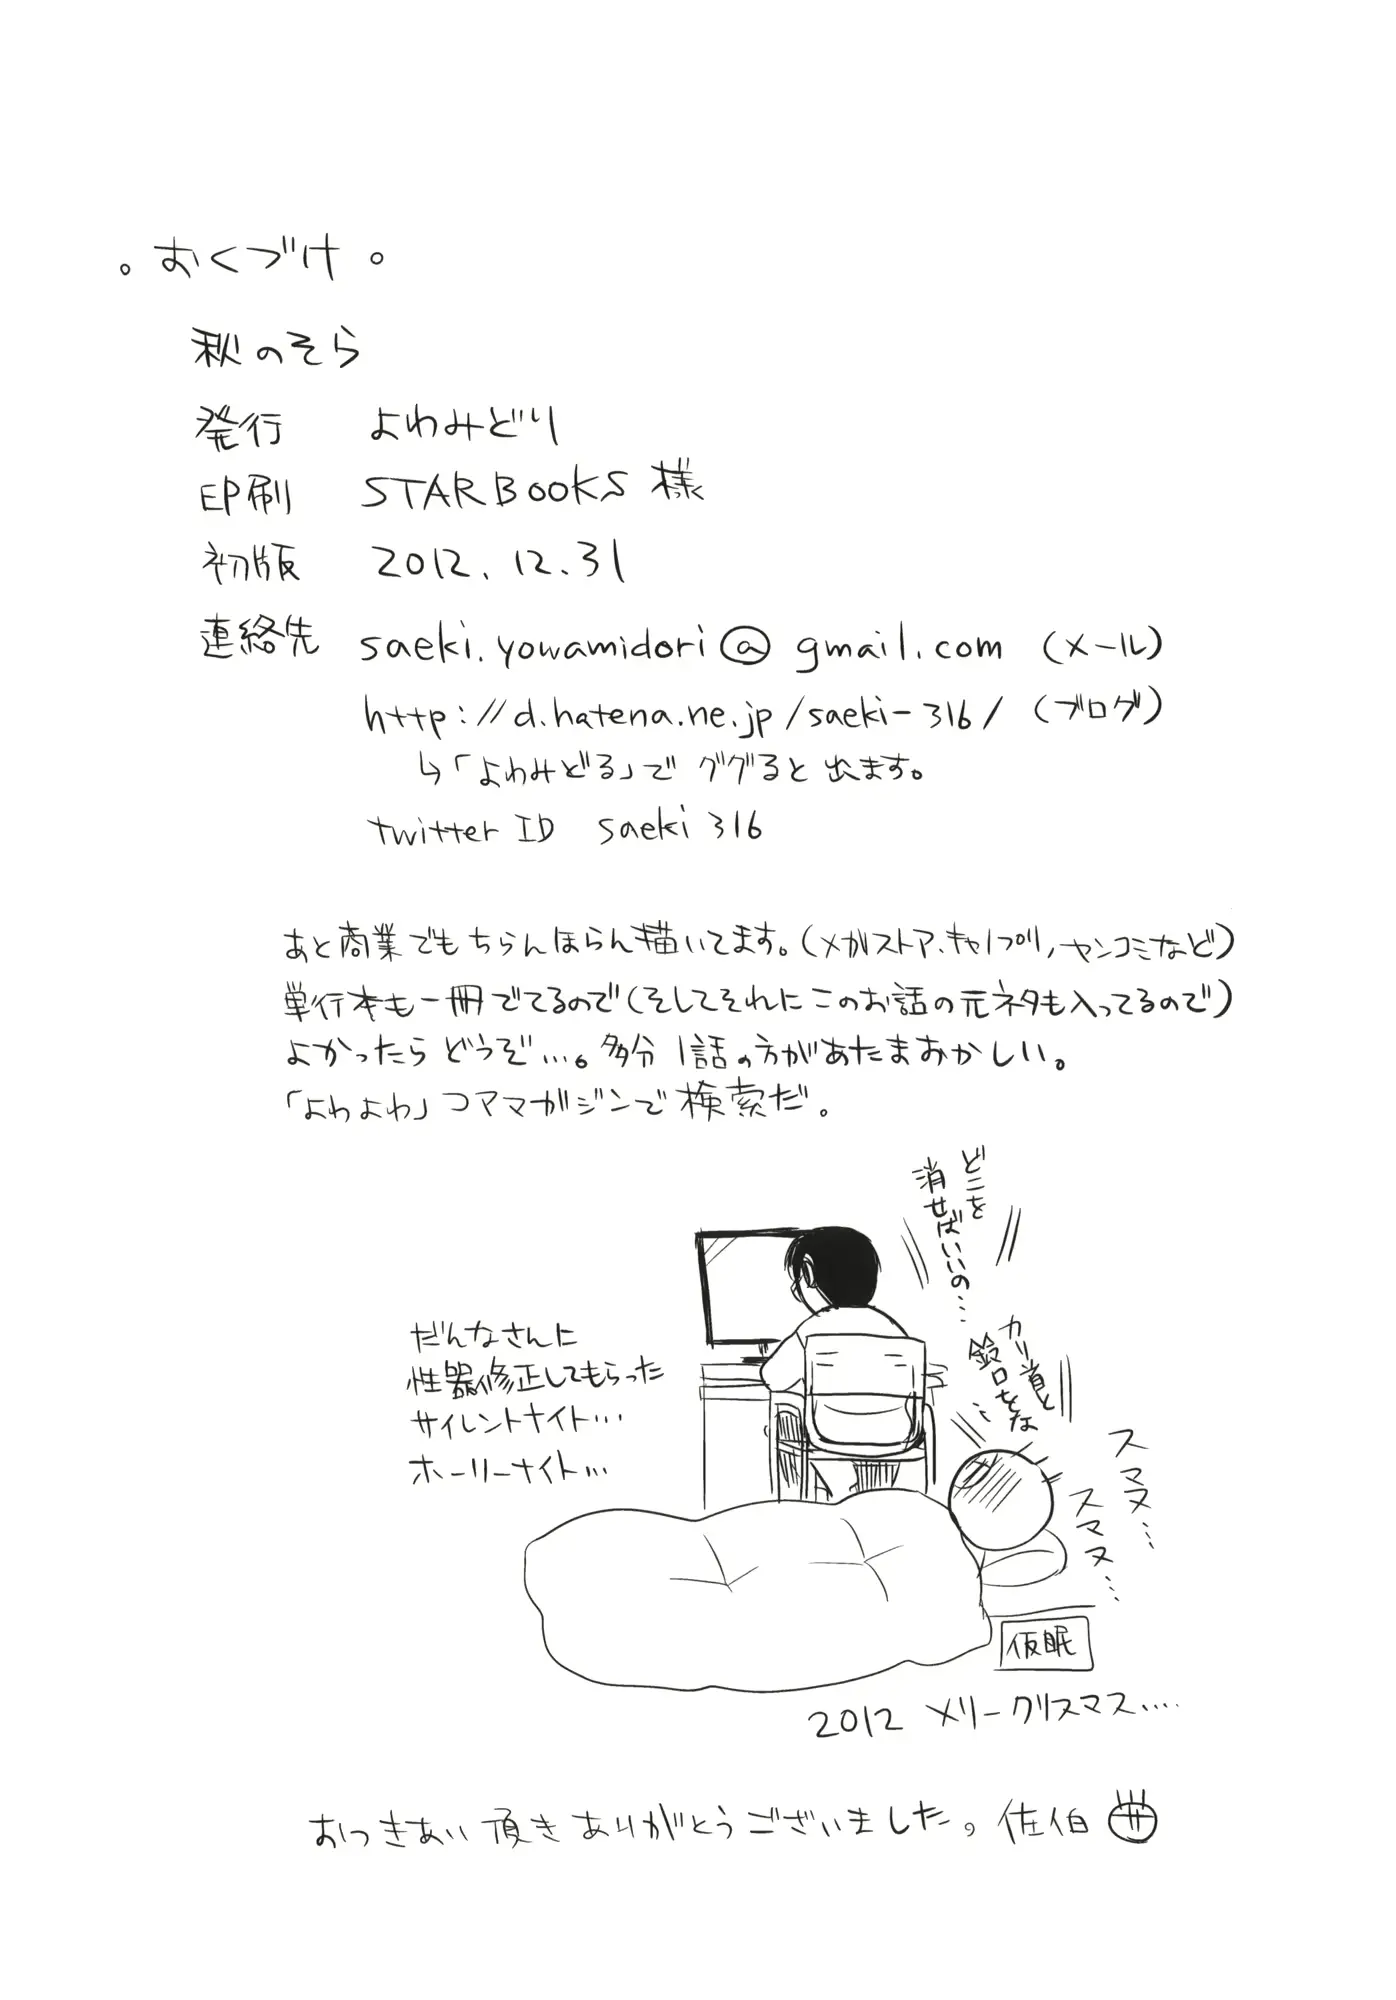 。おくづけ。
秋のそら
発行 よわみどり
印刷 STARBOOKS 様
初版 2012.12.31
連絡先 saeki.yowamidori@gmail.com (メール)
http://d.hatena.ne.jp/saeki-316/ (ブログ)
↳「よわみどる」で ググると出ます。
twitter ID saeki316
あと商業でもちらんほらん描いてます。(メガストア、キャノプリ、ヤンコミなど)
単行本も一冊でてるので(そしてそれにこのお話の元ネタも入ってるので)
よかったらどうぞ…。多分1話の方があたまおかしい。
「よわよわ」コアマガジンで検索だ。
どこを
消せばいいの…
カリ首と
鈴口をな…
だんなさんに
性器修正してもらった
サイレントナイト…
ホーリーナイト…
スマヌ…
スマヌ…
仮眠
2012 メリークリスマス....
おつきあい頂きありがとうございました。佐伯